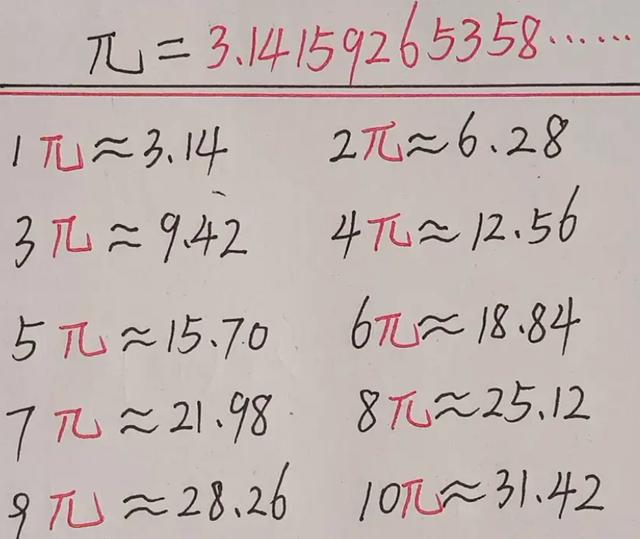 π=3.14159265358······
1π≈3.14 2π≈6.28
3π≈9.42 4π≈12.56
5π≈15.70 6π≈18.84
7π≈21.98 8π≈25.12
9π≈28.26 10π≈31.42